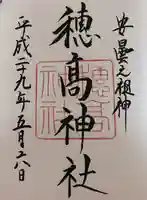 安曇之祖神
穂髙神社
平成二十九年五月二八日